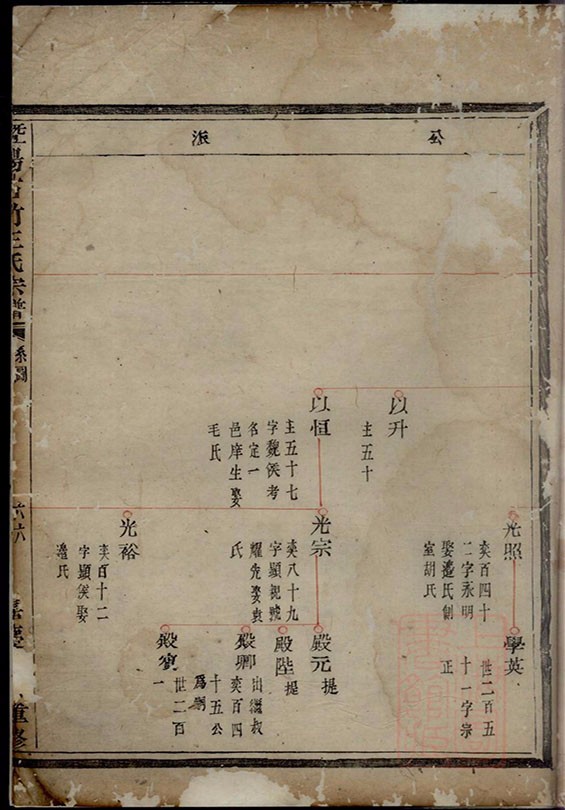 公
派
以升
主五十
以恒
主五十七
字魏侯考
名定一
邑庠生娶
毛氏
光照
奕百四十
二字永明
娶邊氏副
室胡氏
光宗
奕八十九
字顯親號
耀先娶袁
氏
光裕
奕百十二
字顯侯娶
邊氏
學英
世二百五
十一字宗
正
殿元
提
殿陛
提
殿卿
出繼叔
奕百四
十五公
為嗣
殿
世二百
一
王氏宗譜
系圖
六六
重修